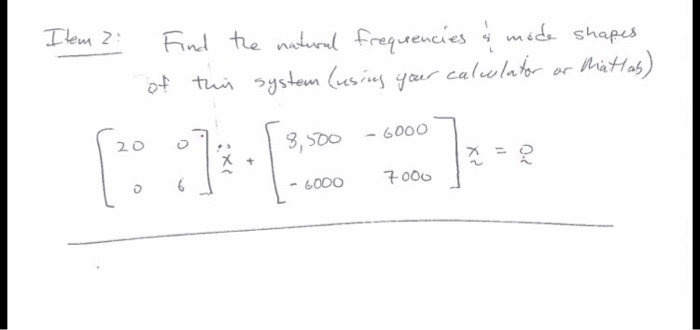 Item 2: Find the natural frequencies & mode shapes
of this system (using your calculator or Matlab)
[20 0] ẍ + [8,500 -6000] x = 0
[0 6] [-6000 7000]